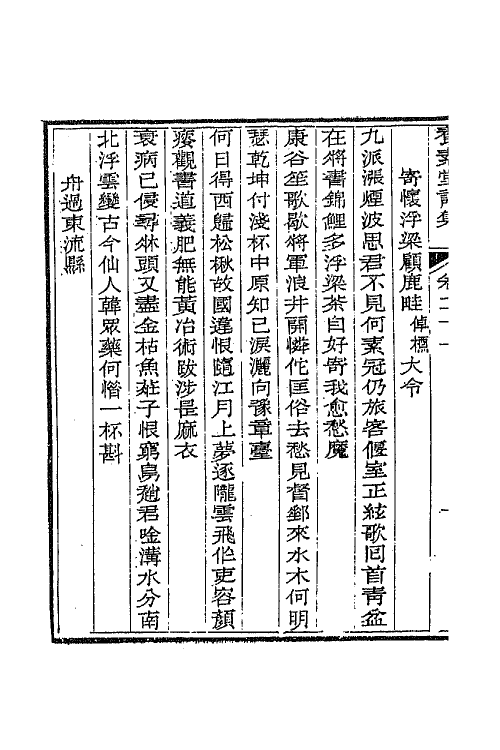 養素堂詩集 卷二十一
寄懷浮梁顧鹿畦偉標大令
九派漲煙波思君不見何素冠仍旅客偃室正絃歌回首靑盆
在將書錦鯉多浮梁茶自好寄我愈愁魔
康谷笙歌歇將軍浪井開憐佗匡俗去愁見督郵來水木何明
瑟乾坤付淺杯中原知己淚灑向豫章臺
何日得西歸松楸故國違恨隨江月上夢逐隴雲飛作吏容顏
瘦觀書道義肥無能黃冶術跋涉長麻衣
衰病已侵尋牀頭又盡金枯魚莊子恨窮鳥趙君唫溝水分南
北浮雲變古今仙人韓眾藥何惜一杯斟
舟過東流縣